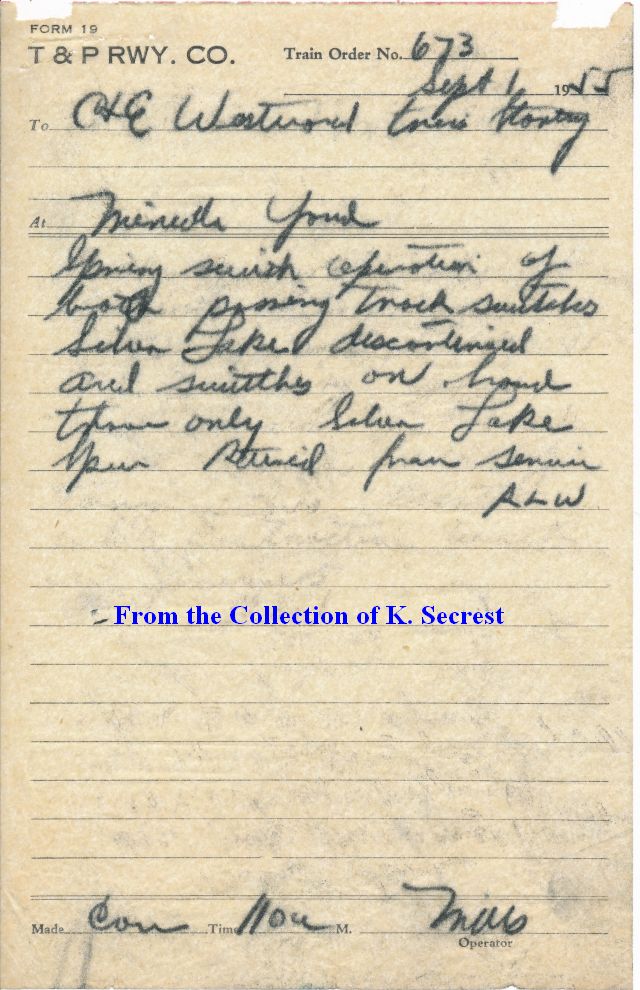 FORM 19
T & P RWY. CO. Train Order No. 673
Sept 1 1955
To C&E Westward
At Yard
Spring switch operation of
both passing track switches
Silver Lake discontinued
and switches on hand
throw only Silver Lake
Spur from service
ALW
From the Collection of K. Secrest
Made Com Time M. Mills
Operator